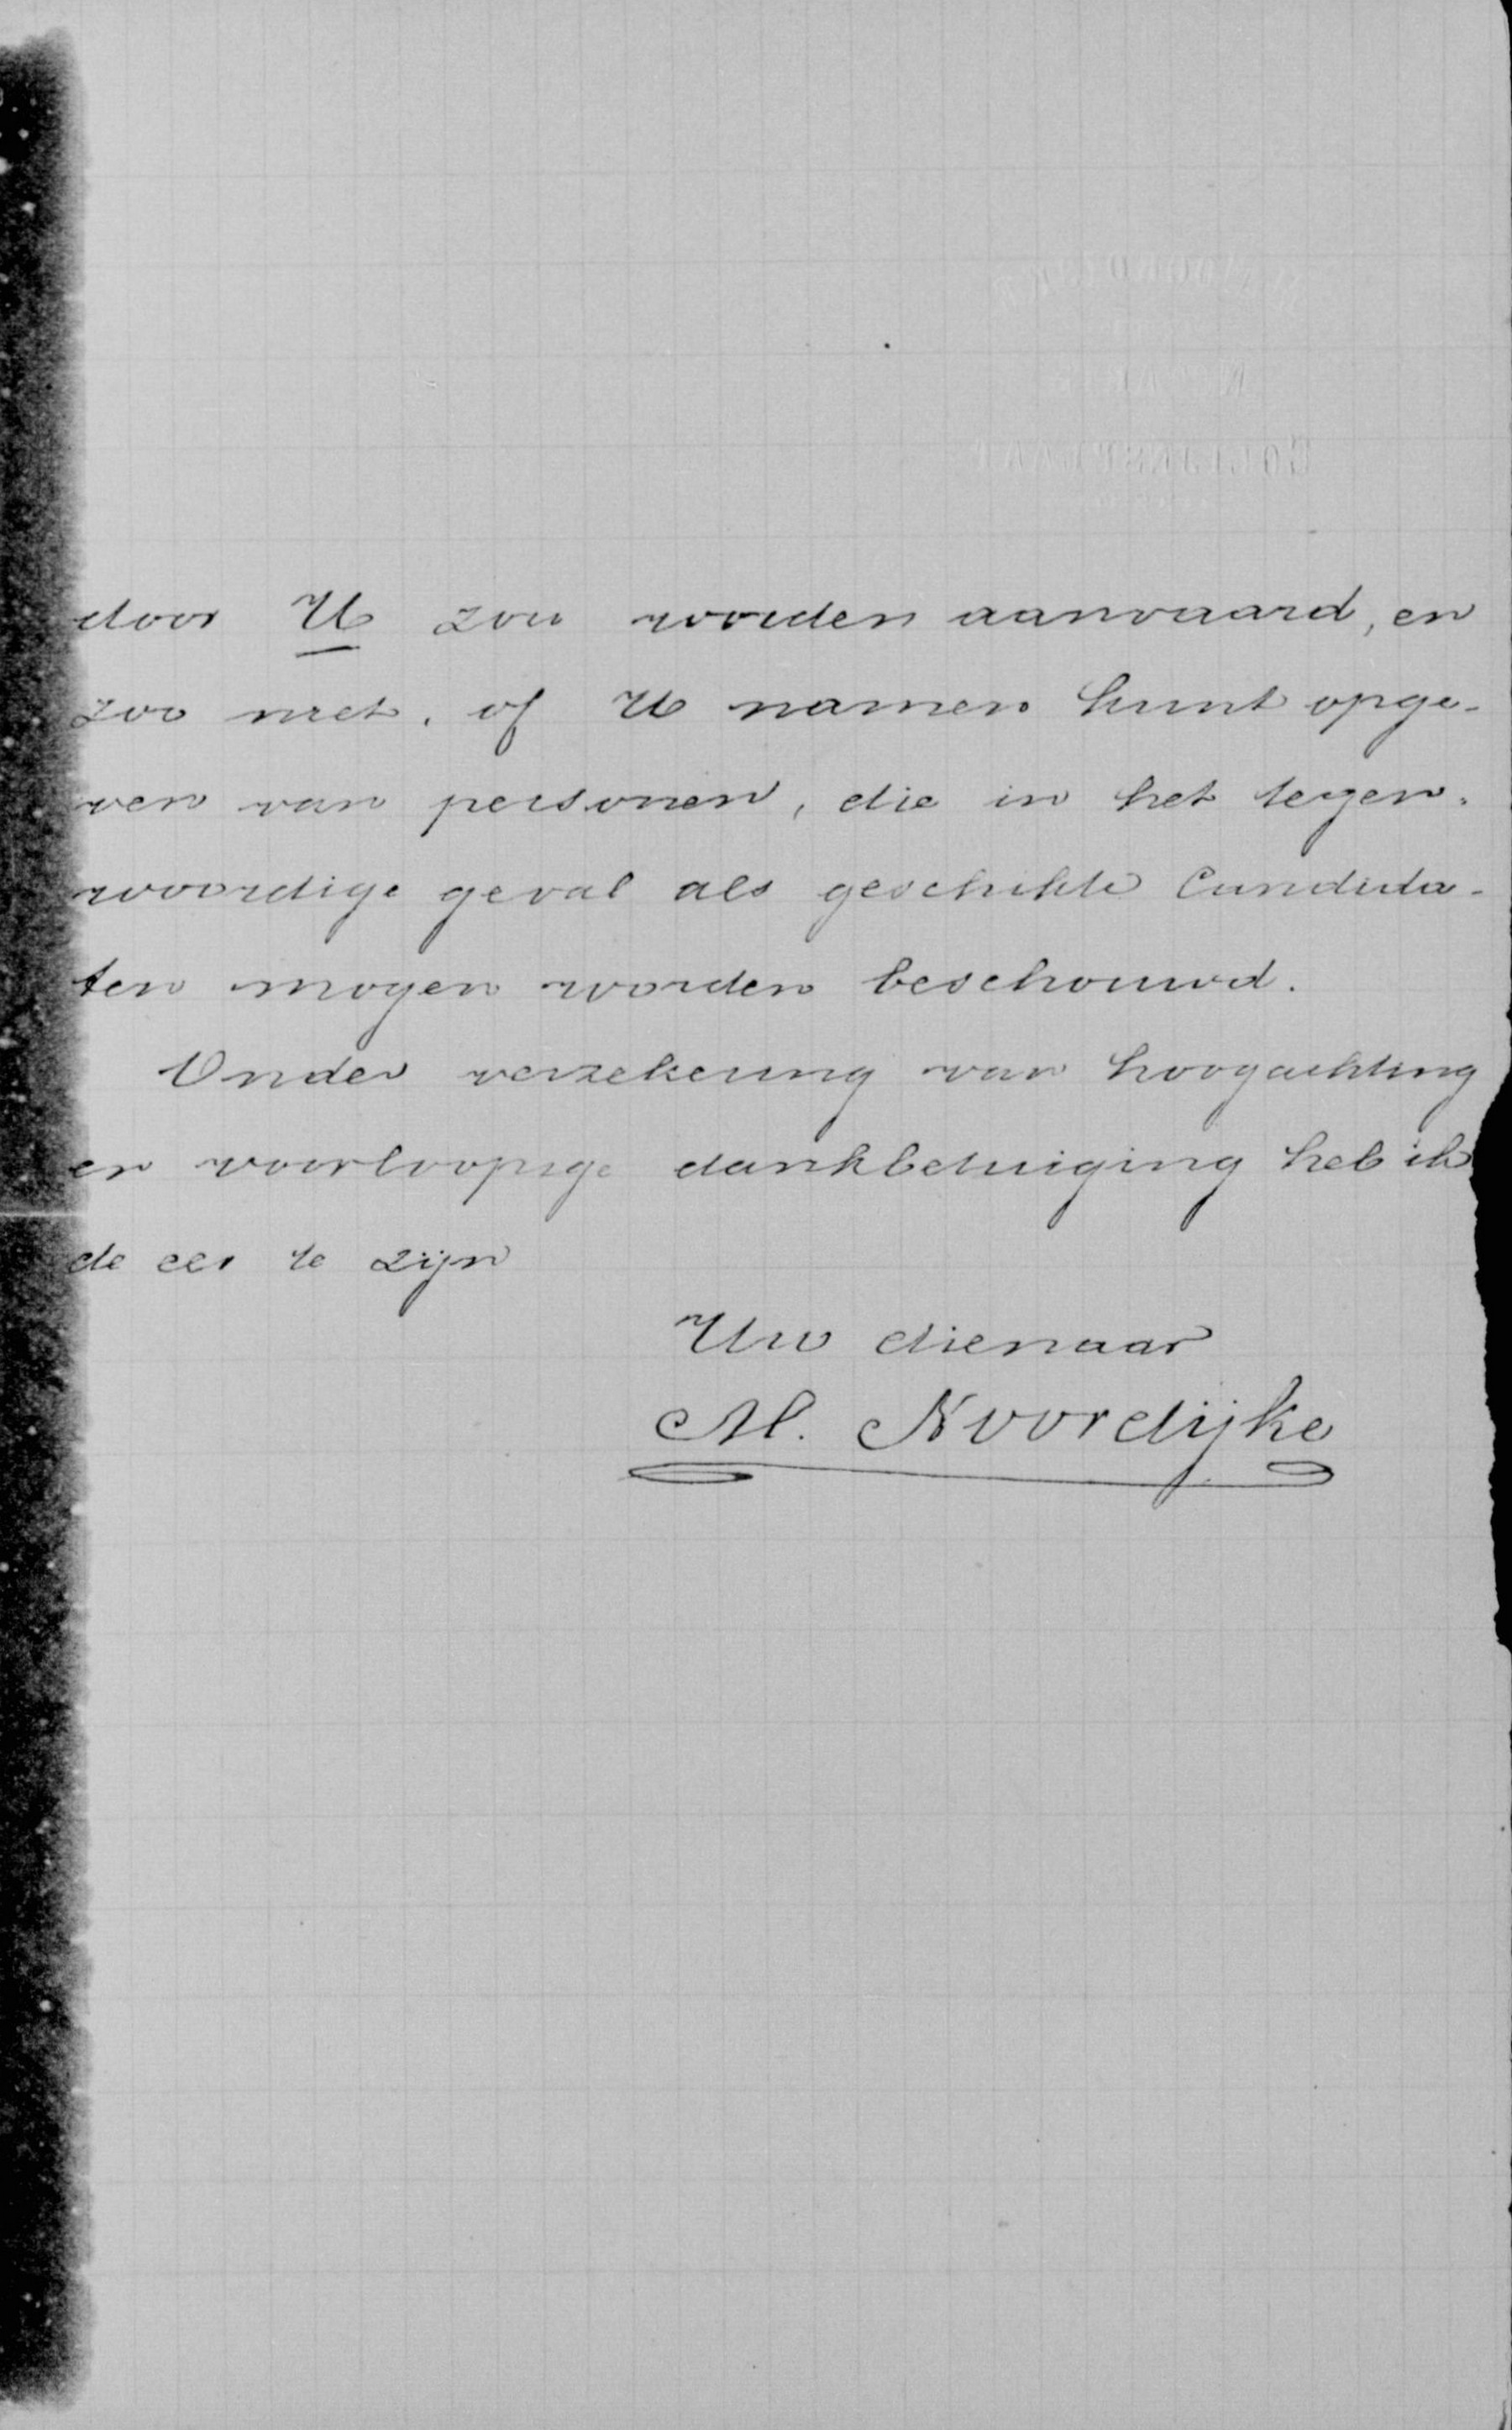 door U zou worden aanvaard, en
zoo niet, of U namen kunt opge-
ven van personen, die in het tegen-
woordige geval als geschikte Candida-
ten mogen worden beschouwd.
Onder verzekering van hoogachting
en voorloopige dankbetuiging heb ik
de eer te zijn
Uw dienaar
M. Noordijke